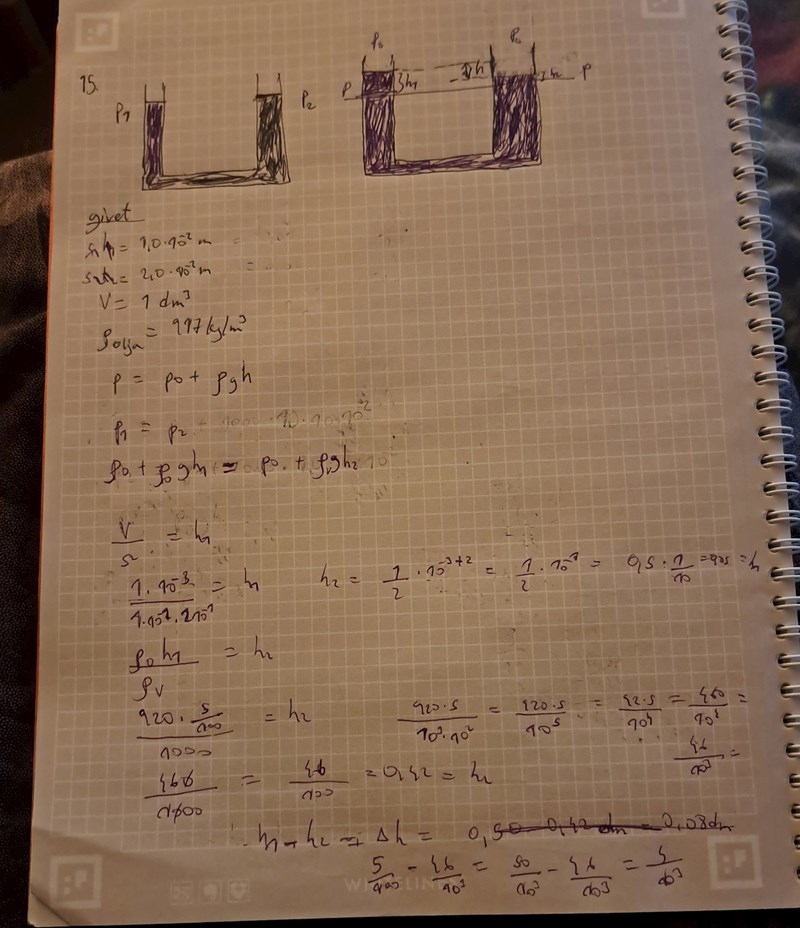 15.
P₁ P₂
P₀ P₀
P }h₁ h h₂ P
givet
= 1,0·10⁻² m
= 2,0·10⁻² m
V = 1 dm³
ρolja = 917 kg/m³
p = p₀ + ρgh
p₁ = p₂
p₀ + ρ₀gh₁ = p₀ + ρᵥgh₂
V/s₂ = h₁
= h₁ h₂ = 1/2 · 10⁻³⁺² = 1/2 · 10⁻¹ = 0,5 · 1/10 = 0,05 = h
ρ₀h₁/ρᵥ = h₂
(920 · 5/100)/1000 = h₂ 920·5/10³·10² = 920·5/10⁵ = 92·5/10⁴ = 460/10⁴ =
46/10³ =
= 46/100 = 0,42 = h₂
h₁ - h₂ = Δh = 0,50 - 0,42 dm = 0,08 dm
5/100 - 46/10³ = 50/10³ - 46/10³ = 4/10³